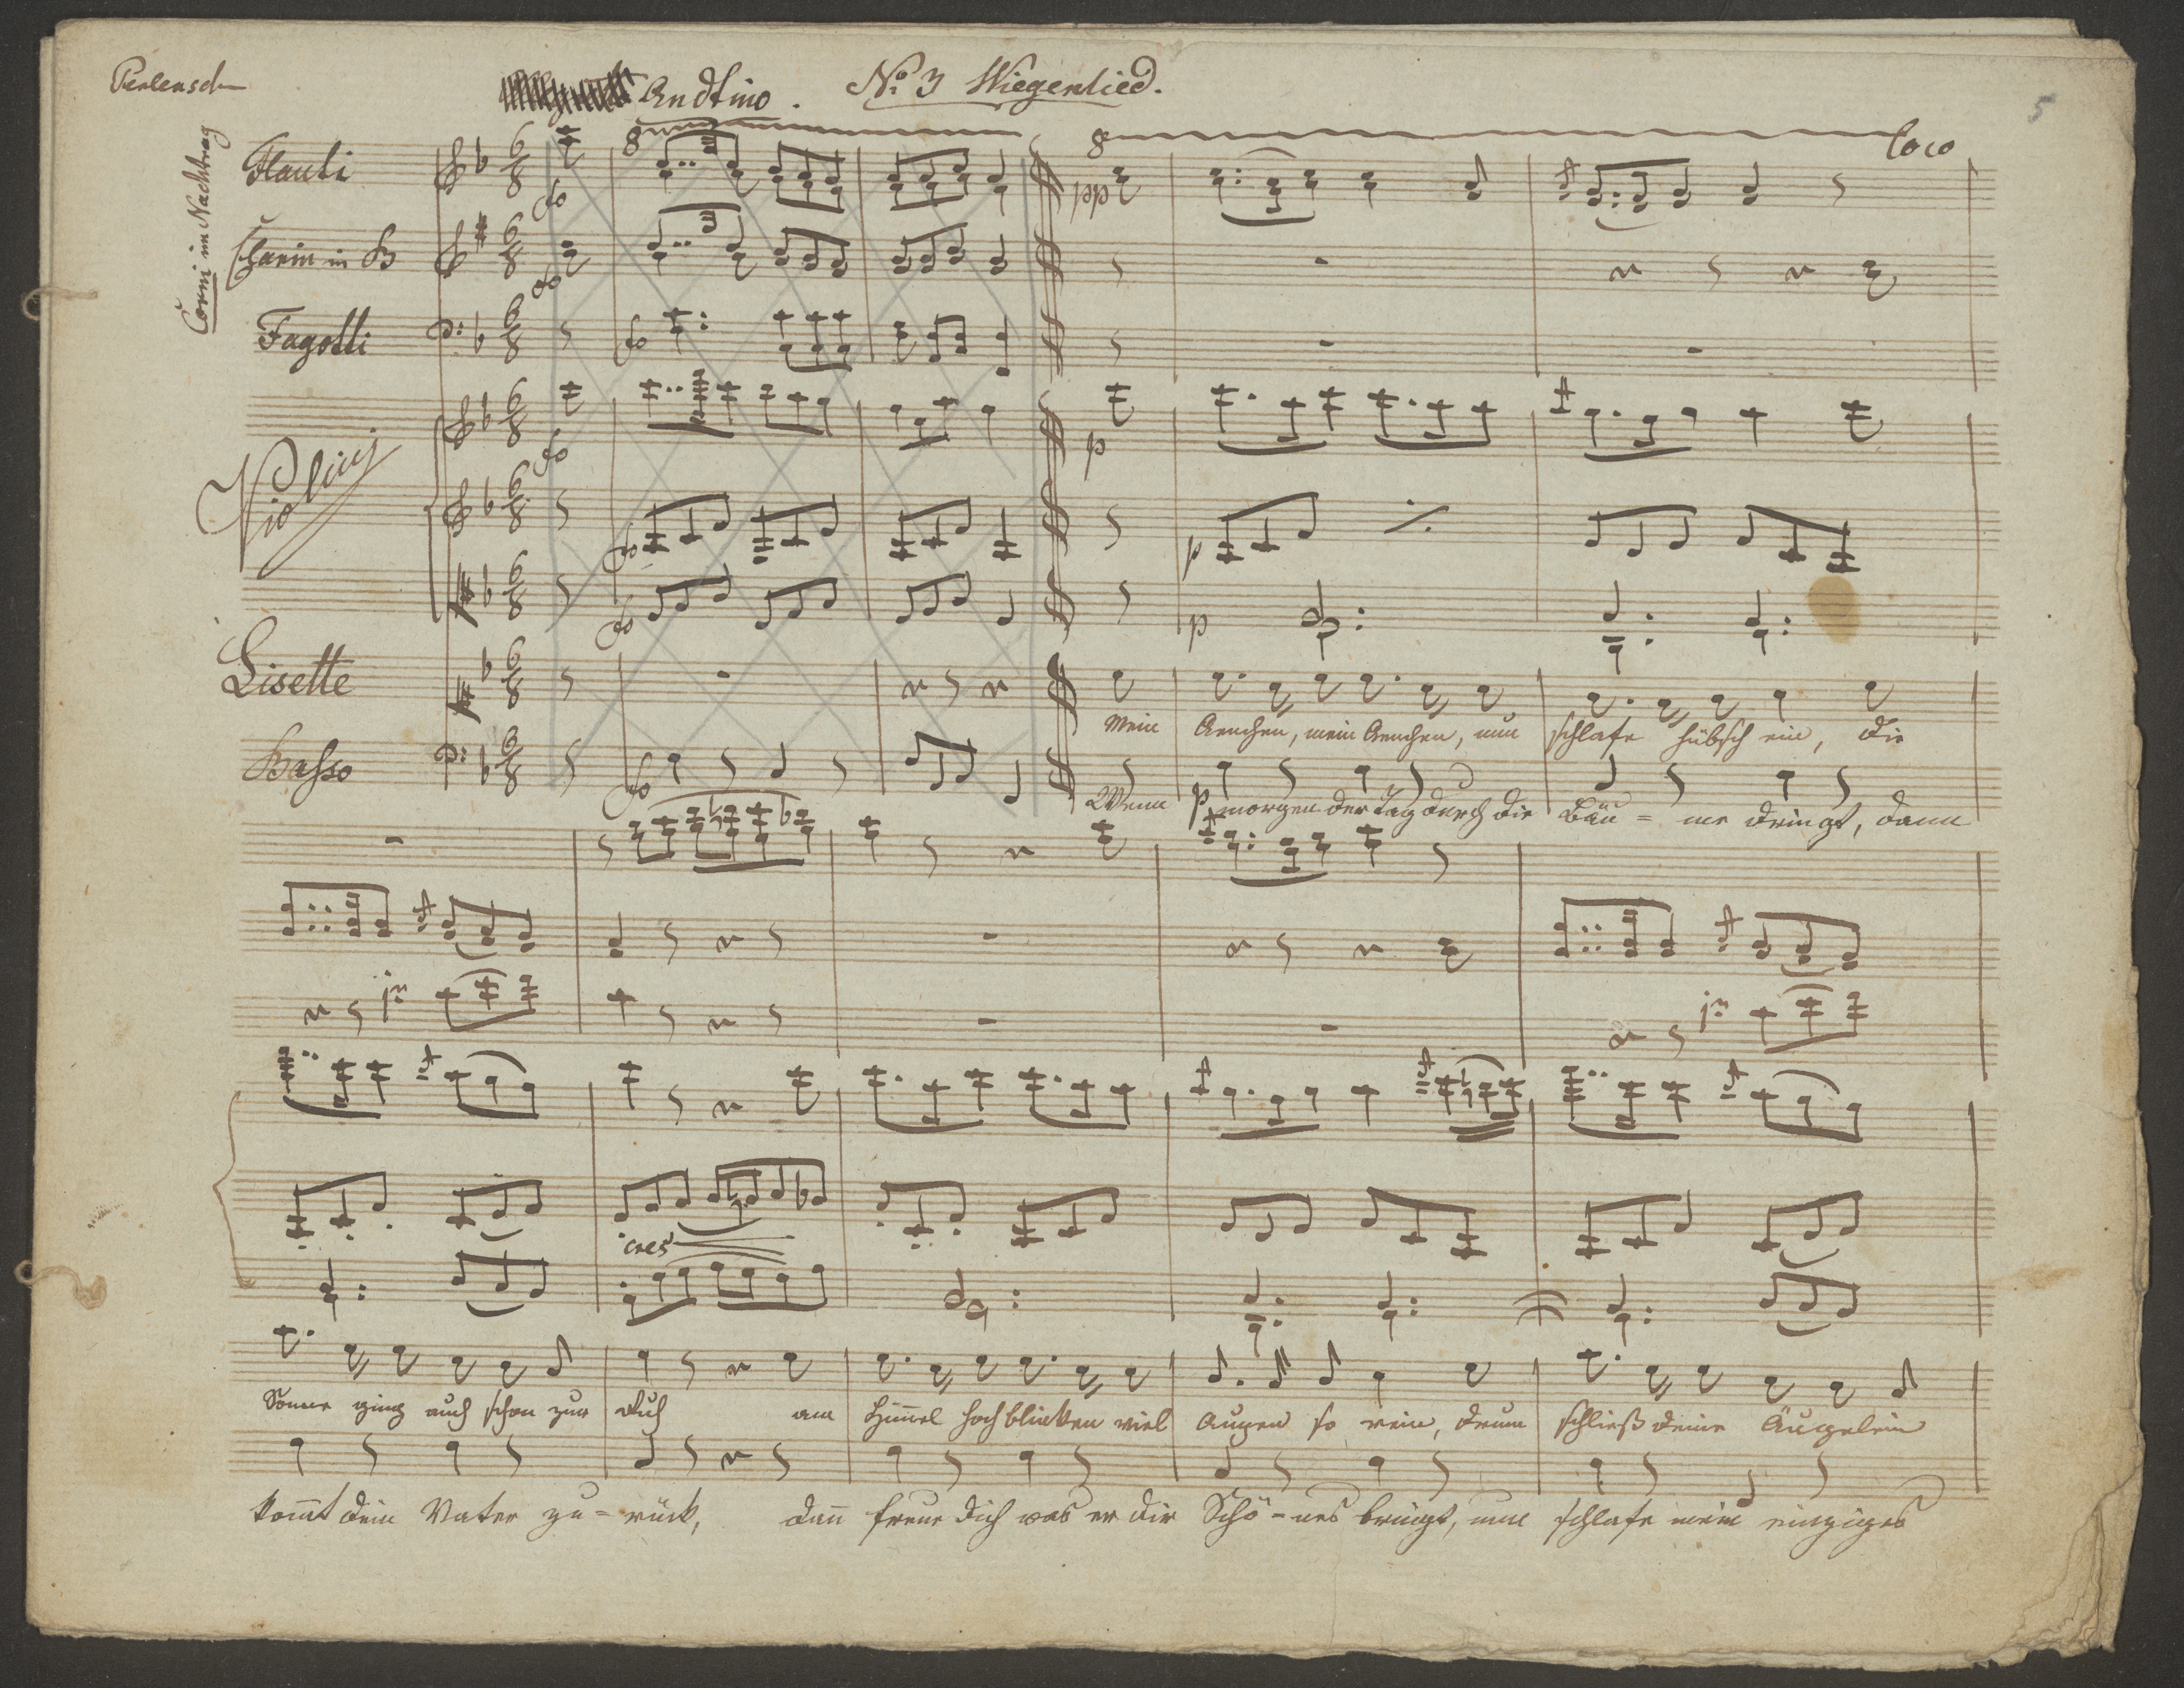 Perlensch
Andtino. No. 3 Wiegenlied.
5
Corni im Nachtrag
8 8 loco
Flauti fo pp
Clarin in B fo
Fagotti fo
Violini fo p
fo p
fo p
Lisette
Mein Aenchen, mein Aenchen, nun schlafe hübsch ein, die
Basso fo p
Wenn morgen der Tag durch die Bäu = me dringt, dann
cres
Sonne ging auch schon zur Ruh am Him̄el hoch blinken viel Augen so rein, drum schließ deine Äugelein
kom̄t dein Vater zu = rück, dan̄ freue dich was er dir Schö = nes bringt, nun schlafe mein einziges